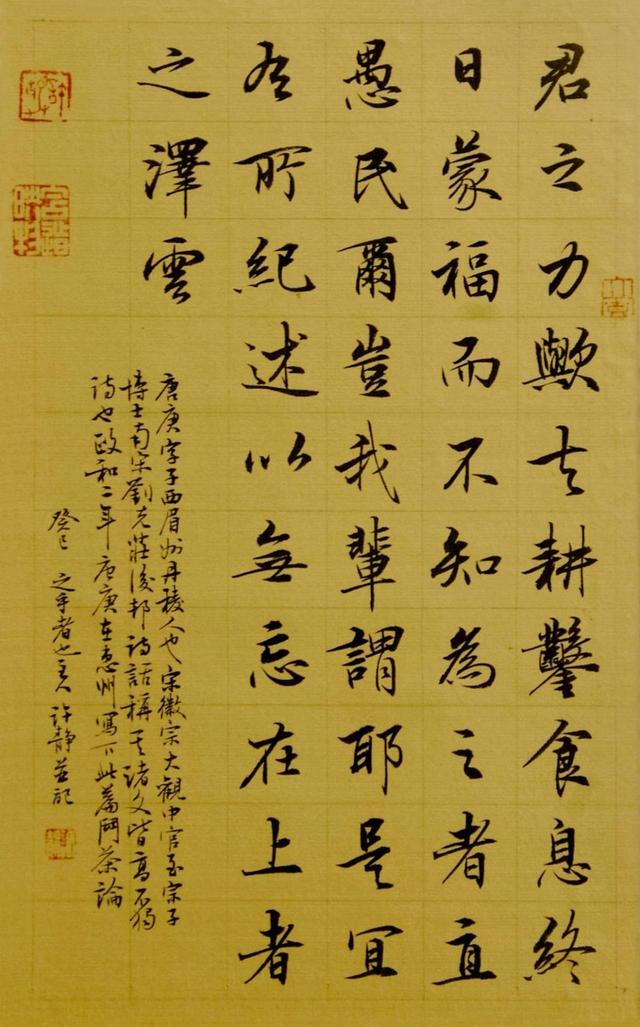 君之力歟夫耕鑿食息終
日蒙福而不知為之者直
愚民爾豈我輩謂耶是宜
有所紀述以無忘在上者
之澤雲
唐庚字子西眉州丹稜人也宋徽宗大觀中官至宗子
博士南宋劉克莊後邨詩話稱其諸文皆高不獨
詩也政和二年唐庚在惠州寫下此篇鬥茶論
癸巳 之乎者也主人 許靜并記